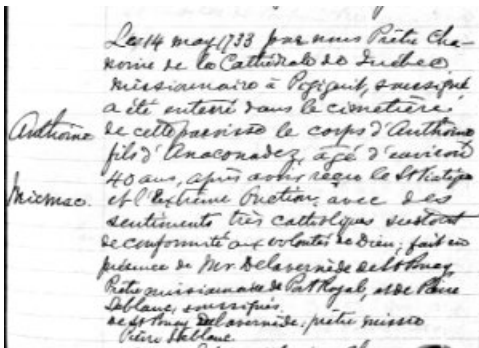 Le 14 may 1733 par nous Prêtre Cha-
noine de la Cathédrale de Québec
missionnaire à Pigiguit, soussigné
a été enterré dans le cimetière
Anthoine de cette paroisse le corps d'Anthoine
fils d'Anaconadez, âgé d'environ
40 ans, après avoir reçu le St Viatique
Micmac. et l'Extrême Onction, avec des
sentiments très catholiques surtout
de conformité aux volontés de Dieu; fait en
présence de Mr. Delavernède de St Poncy,
Prêtre missionnaire de Port Royal, et de Pierre
Leblanc, soussignés.
de St Poncy Delavernède, prêtre misso
Pierre Leblanc